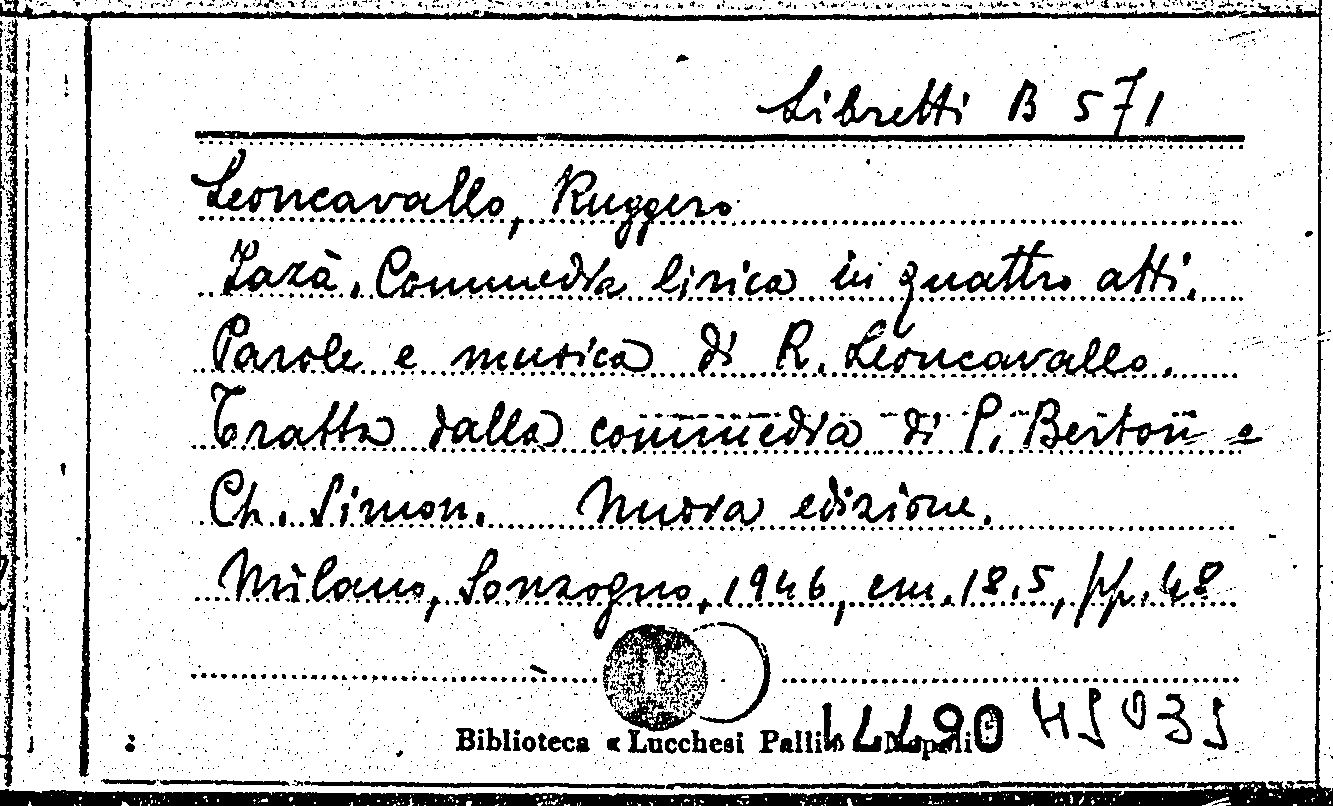 Libretti B 571
Leoncavallo, Ruggero
Zazà. Commedia lirica in quattro atti.
Parole e musica di R. Leoncavallo.
Tratta dalla commedia di P. Berton e
Ch. Simon. Nuova edizione.
Milano, Sonzogno, 1946, cm. 18.5, pp. 48
Biblioteca « Lucchesi Palli Napoli